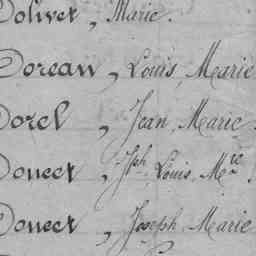 Dolivet, Marie.
Doreau, Louis, Marie
Dorel, Jean, Marie.
Douect, Jph, Louis, Mie.
Douect, Joseph, Marie